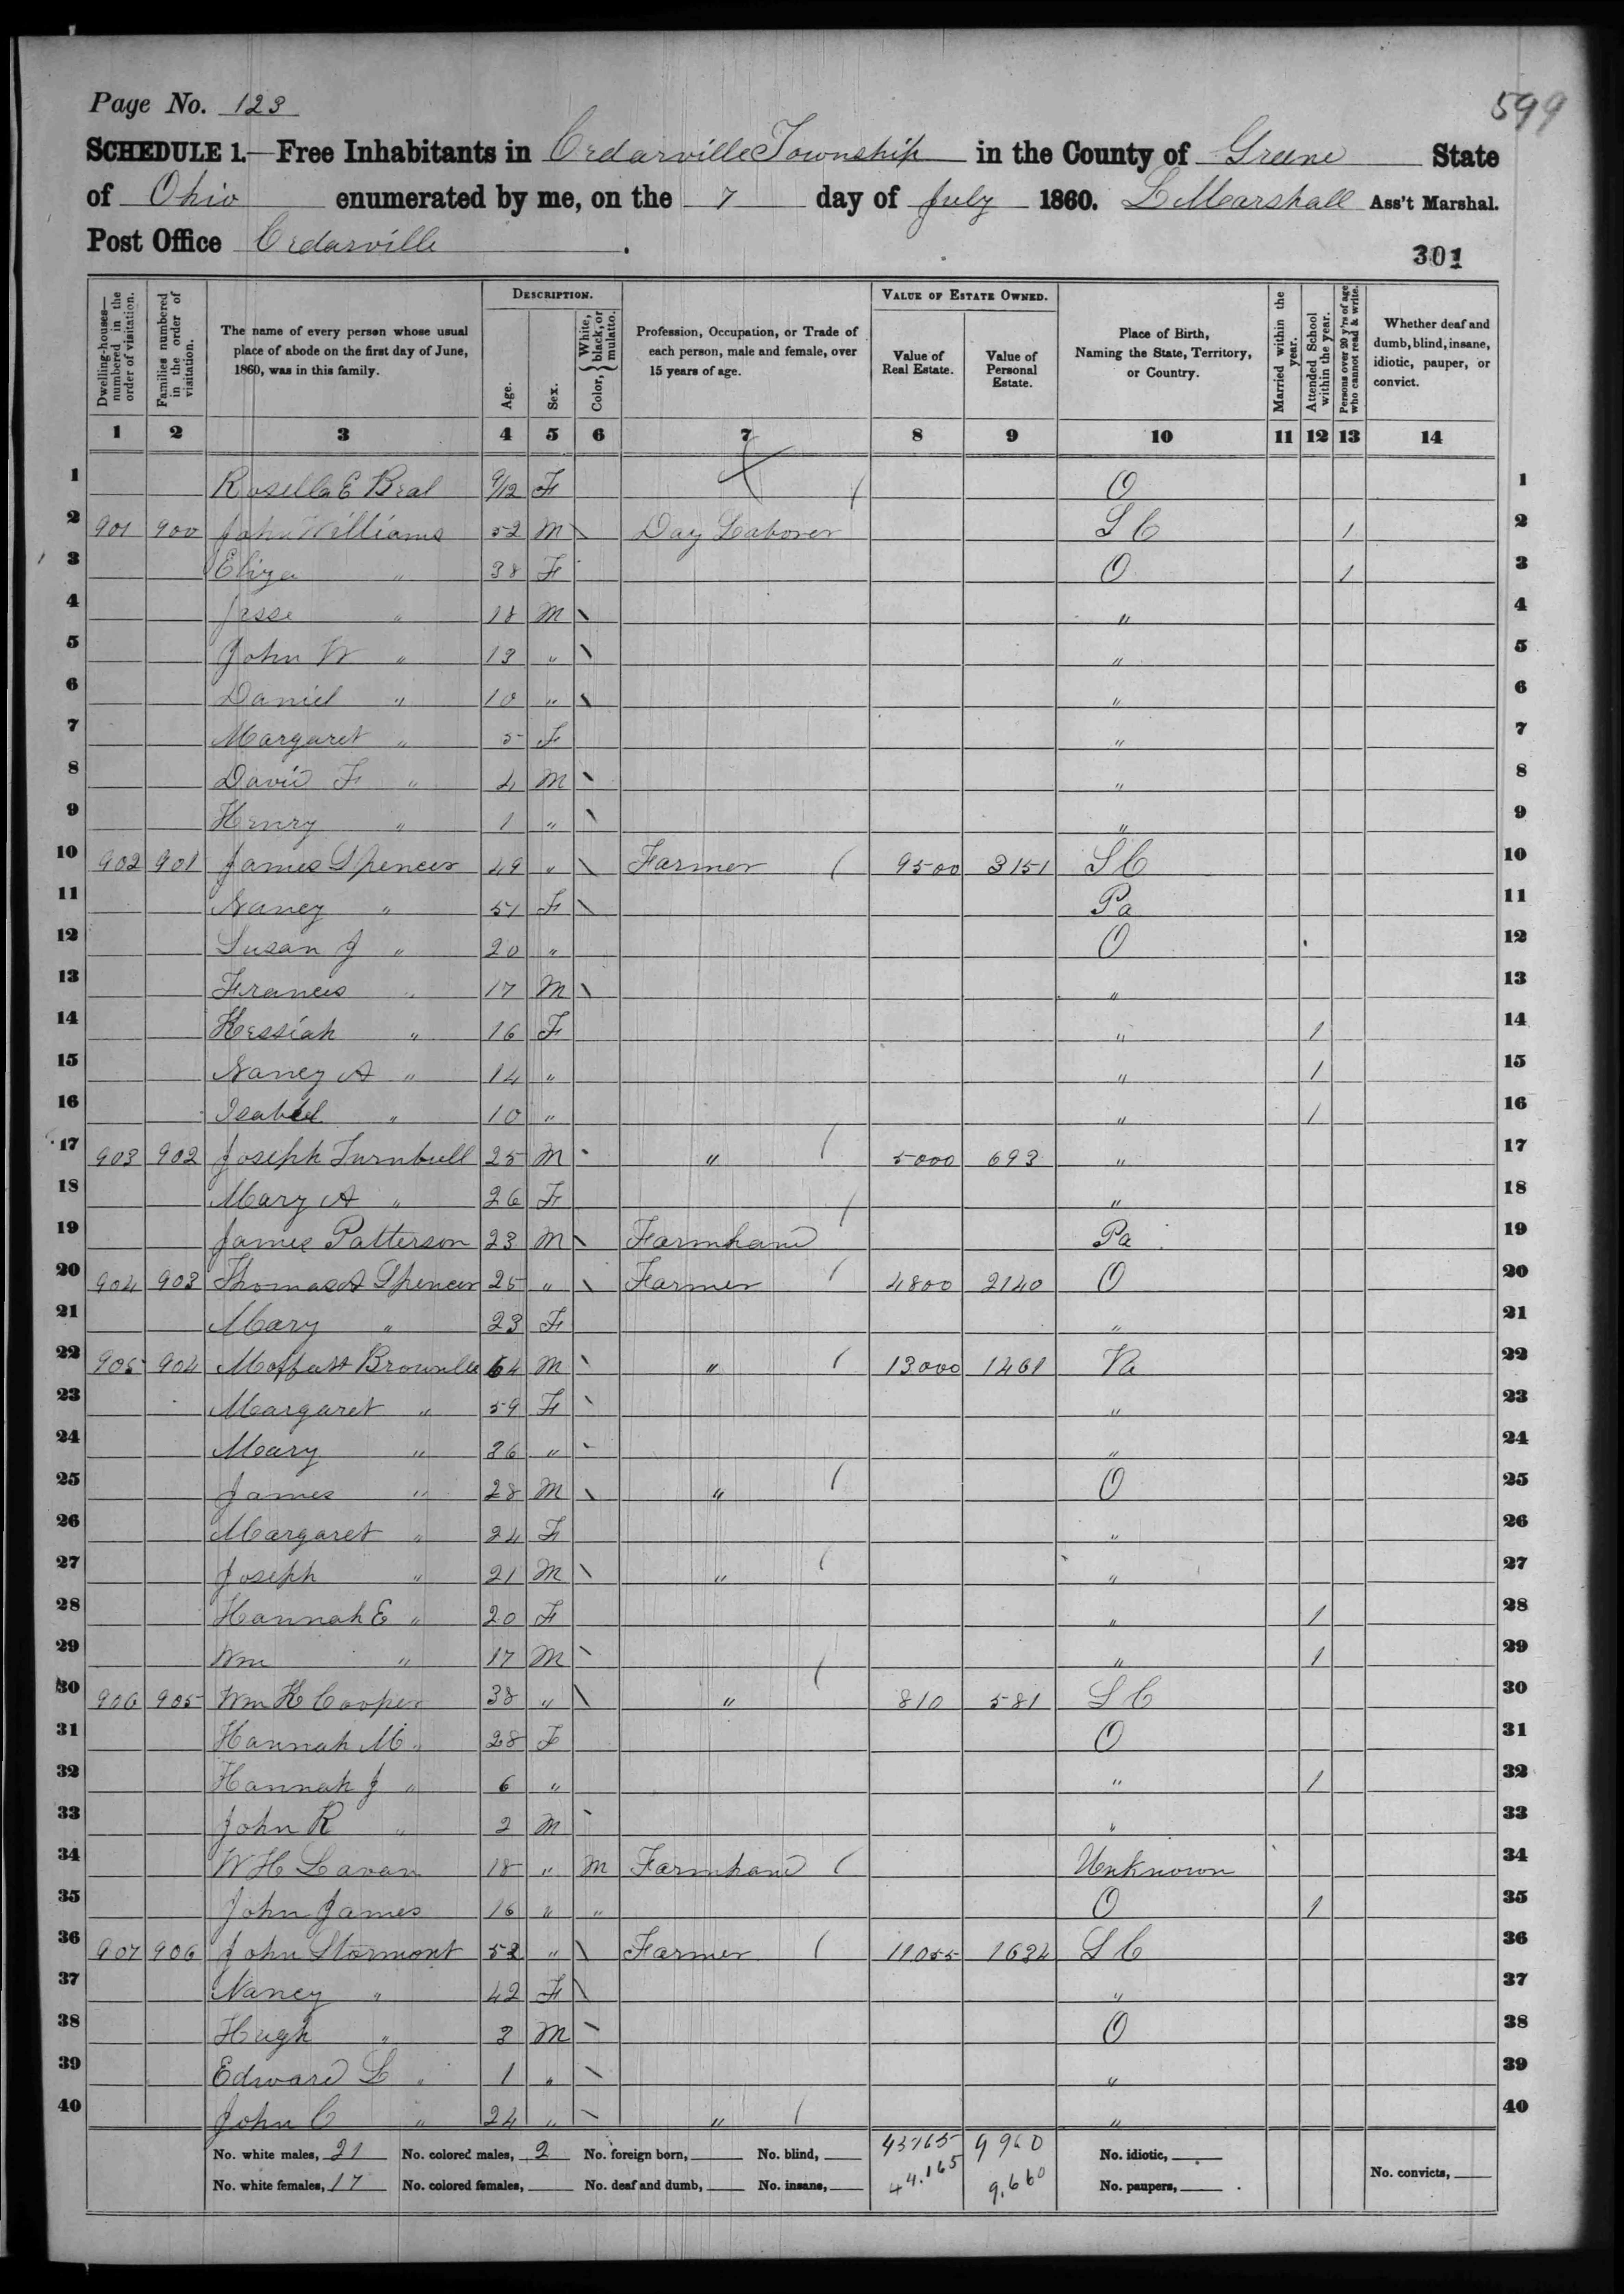 Page No. 123
599
SCHEDULE 1.—Free Inhabitants in Cedarville Township in the County of Greene State
of Ohio enumerated by me, on the 7 day of July 1860. L Marshall Ass't Marshal.
Post Office Cedarville.
301
Dwelling-houses—numbered in the order of visitation. Families numbered in the order of visitation. The name of every person whose usual place of abode on the first day of June, 1860, was in this family. DESCRIPTION. Age. Sex. Color, { White, black, or mulatto. Profession, Occupation, or Trade of each person, male and female, over 15 years of age. VALUE OF ESTATE OWNED. Value of Real Estate. Value of Personal Estate. Place of Birth, Naming the State, Territory, or Country. Married within the year. Attended School within the year. Persons over 20 y'rs of age who cannot read & write. Whether deaf and dumb, blind, insane, idiotic, pauper, or convict.
1 2 3 4 5 6 7 8 9 10 11 12 13 14
1 Rosella E Beal 9/12 F O 1
2 901 900 John Williams 52 M \ Day Laborer S C 1 2
3 Eliza " 38 F O 1 3
4 Jesse " 18 M \ " 4
5 John W " 13 " \ " 5
6 Daniel " 10 " \ " 6
7 Margaret " 5 F " 7
8 David F " 4 M \ " 8
9 Henry " 1 " \ " 9
10 902 901 James Spencer 49 " \ Farmer 9500 3151 S C 10
11 Nancy " 51 F \ Pa 11
12 Susan J " 20 " O 12
13 Francis " 17 M \ " 13
14 Kessiah " 16 F " 1 14
15 Nancy A " 14 " " 1 15
16 Isabel " 10 " " 1 16
17 903 902 Joseph Turnbull 25 M " 5000 693 " 17
18 Mary A " 26 F " 18
19 James Patterson 23 M \ Farmhand Pa 19
20 904 903 Thomas A Spencer 25 " \ Farmer 4800 2140 O 20
21 Mary " 23 F " 21
22 905 904 Moffatt Brownlee 64 M \ " 13000 1461 Va 22
23 Margaret " 59 F \ " 23
24 Mary " 36 " " 24
25 James " 28 M \ " O 25
26 Margaret " 24 F " 26
27 Joseph " 21 M \ " " 27
28 Hannah E " 20 F " 1 28
29 Wm " 17 M \ " 1 29
30 906 905 Wm H Cooper 38 " \ " 810 581 S C 30
31 Hannah M " 28 F O 31
32 Hannah J " 6 " " 1 32
33 John R " 2 M \ " 33
34 W H Lavan 18 " M Farmhand Unknown 34
35 John James 16 " " O 1 35
36 907 906 John Stormont 52 " \ Farmer 11055 1634 S C 36
37 Nancy " 42 F \ " 37
38 Hugh " 3 M \ O 38
39 Edward L " 1 " \ " 39
40 John C " 24 " \ " " 40
No. white males, 21 No. colored males, 2 No. foreign born, No. blind, 43765 9960 No. idiotic,
No. white females, 17 No. colored females, No. deaf and dumb, No. insane, 44.165 9,660 No. paupers, No. convicts,